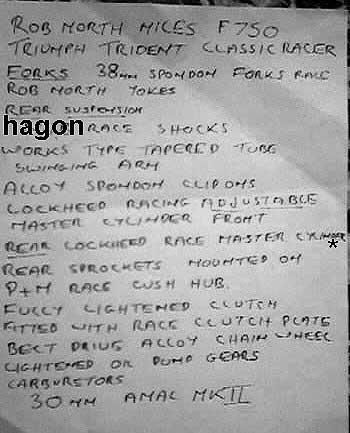 ROB NORTH MILES F750
TRIUMPH TRIDENT CLASSIC RACER
FORKS 38mm SPONDON FORKS RACE
ROB NORTH YOKES
REAR SUSPENSION
hagon RACE SHOCKS
WORKS TYPE TAPERED TUBE
SWINGING ARM
ALLOY SPONDON CLIPONS
LOCKHEED RACING ADJUSTABLE
MASTER CYLINDER FRONT
REAR LOCKHEED RACE MASTER CYLINDER
*
REAR SPROCKETS MOUNTED ON
P+M RACE CUSH HUB.
FULLY LIGHTENED CLUTCH
FITTED WITH RACE CLUTCH PLATE
BELT DRIVE ALLOY CHAIN WHEEL
LIGHTENED OIL PUMP GEARS
CARBURETORS
30MM AMAL MKII